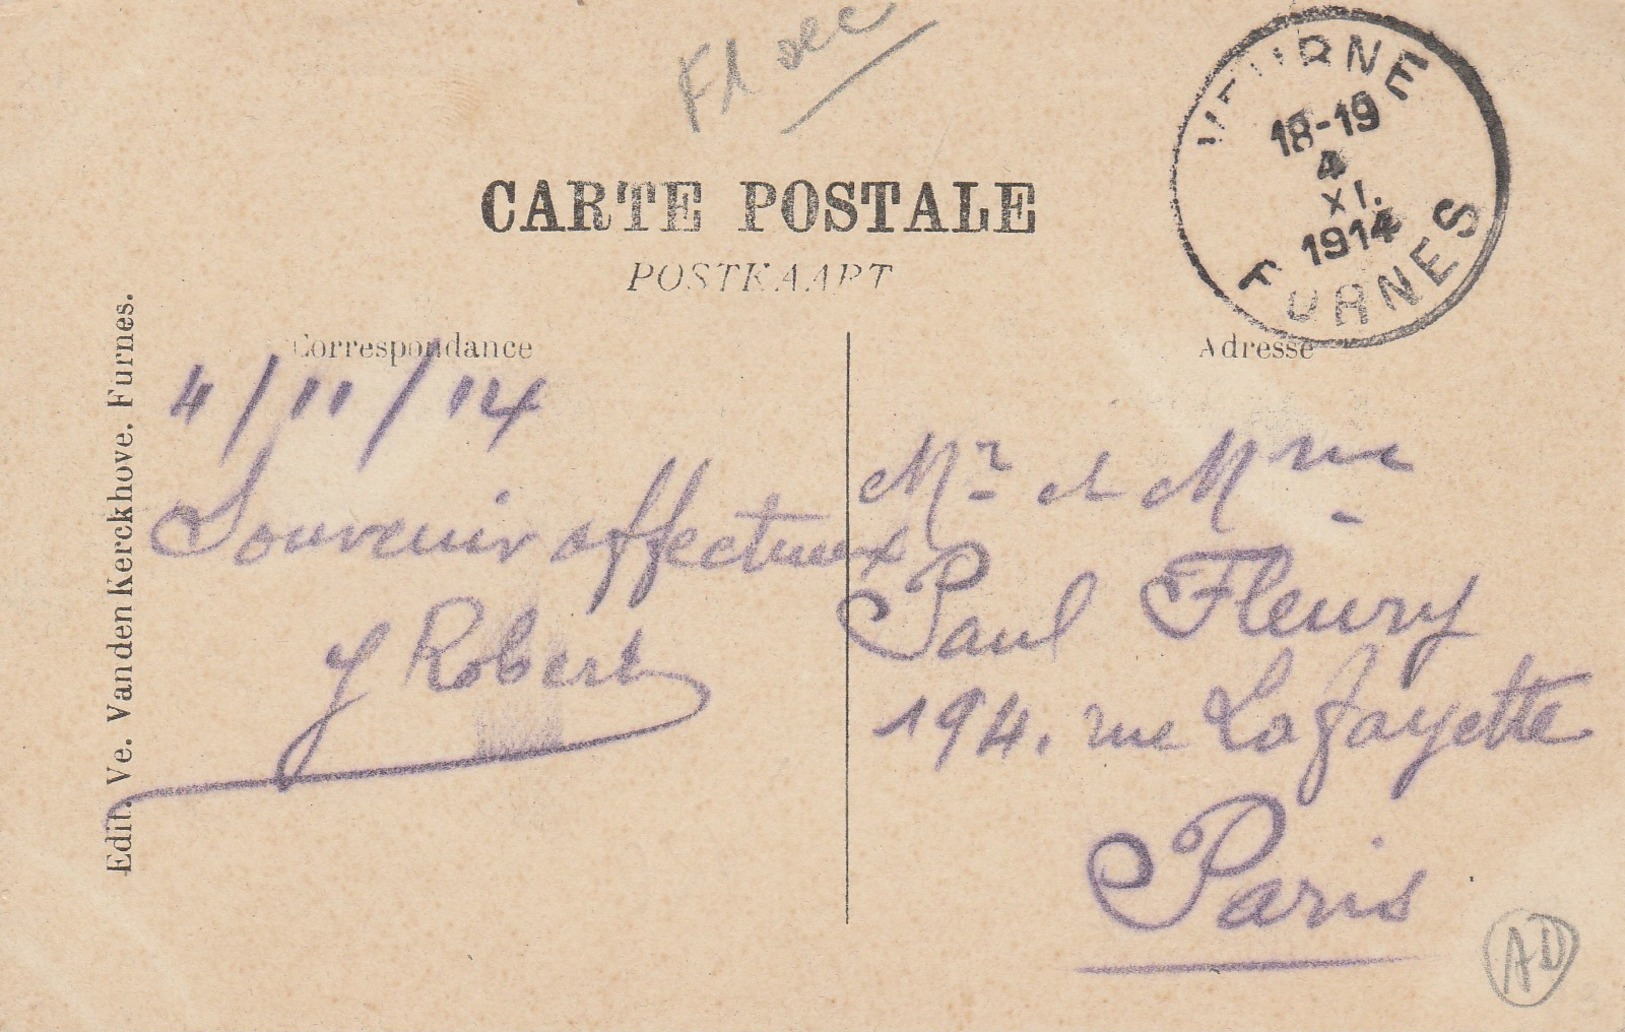 Fl occ
VEURNE
18-19
4
XI.
1914
FURNES
CARTE POSTALE
POSTKAART
Correspondance
Adresse
Edit. Ve. Vanden Kerckhove. Furnes.
4/11/14
Souvenir affectueux
J Robert
Mr et Mme
Paul Fleury
194. rue Lafayette
Paris
AD